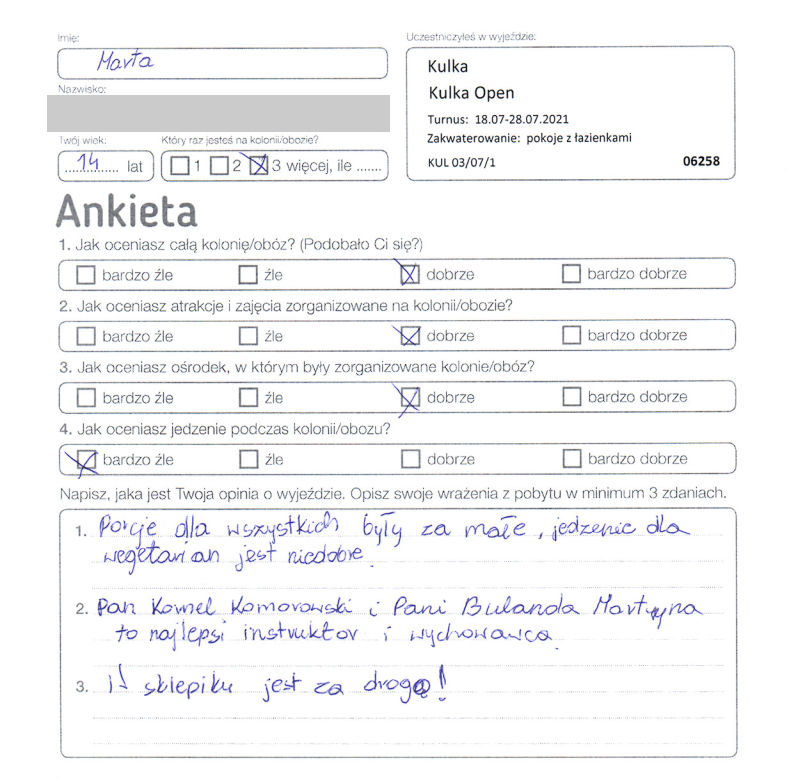 Imię:
Marta
Nazwisko:
Twój wiek:
Który raz jesteś na kolonii/obozie?
14 lat
1 2 3 więcej, ile .......
Uczestniczyłeś w wyjeździe:
Kulka
Kulka Open
Turnus: 18.07-28.07.2021
Zakwaterowanie: pokoje z łazienkami
KUL 03/07/1 06258
Ankieta
1. Jak oceniasz całą kolonię/obóz? (Podobało Ci się?)
bardzo źle źle dobrze bardzo dobrze
2. Jak oceniasz atrakcje i zajęcia zorganizowane na kolonii/obozie?
bardzo źle źle dobrze bardzo dobrze
3. Jak oceniasz ośrodek, w którym były zorganizowane kolonie/obóz?
bardzo źle źle dobrze bardzo dobrze
4. Jak oceniasz jedzenie podczas kolonii/obozu?
bardzo źle źle dobrze bardzo dobrze
Napisz, jaka jest Twoja opinia o wyjeździe. Opisz swoje wrażenia z pobytu w minimum 3 zdaniach.
1. Porcje dla wszystkich były za małe, jedzenie dla
wegetarian jest niedobre.
2. Pan Kornel Komorowski i Pani Bulanda Martyna
to najlepsi instruktor i wychowawca.
3. W sklepiku jest za drogo!